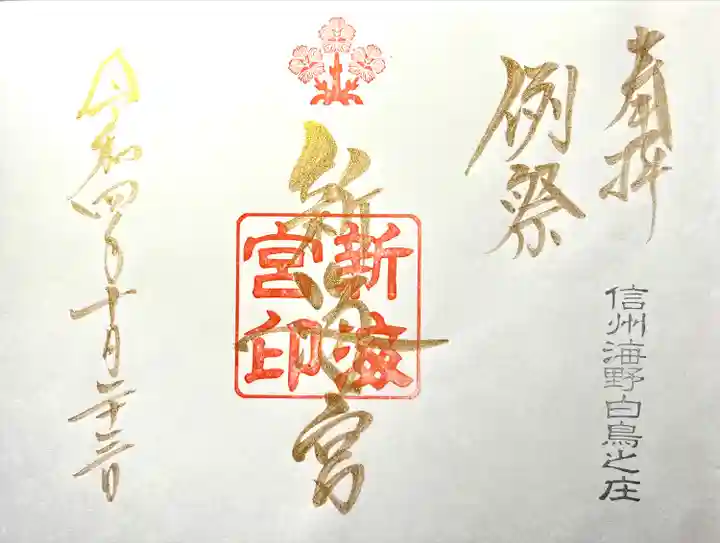 奉拝
例祭
信州海野白鳥之庄
新海宮
新海宮印
令和四年十月二十三日